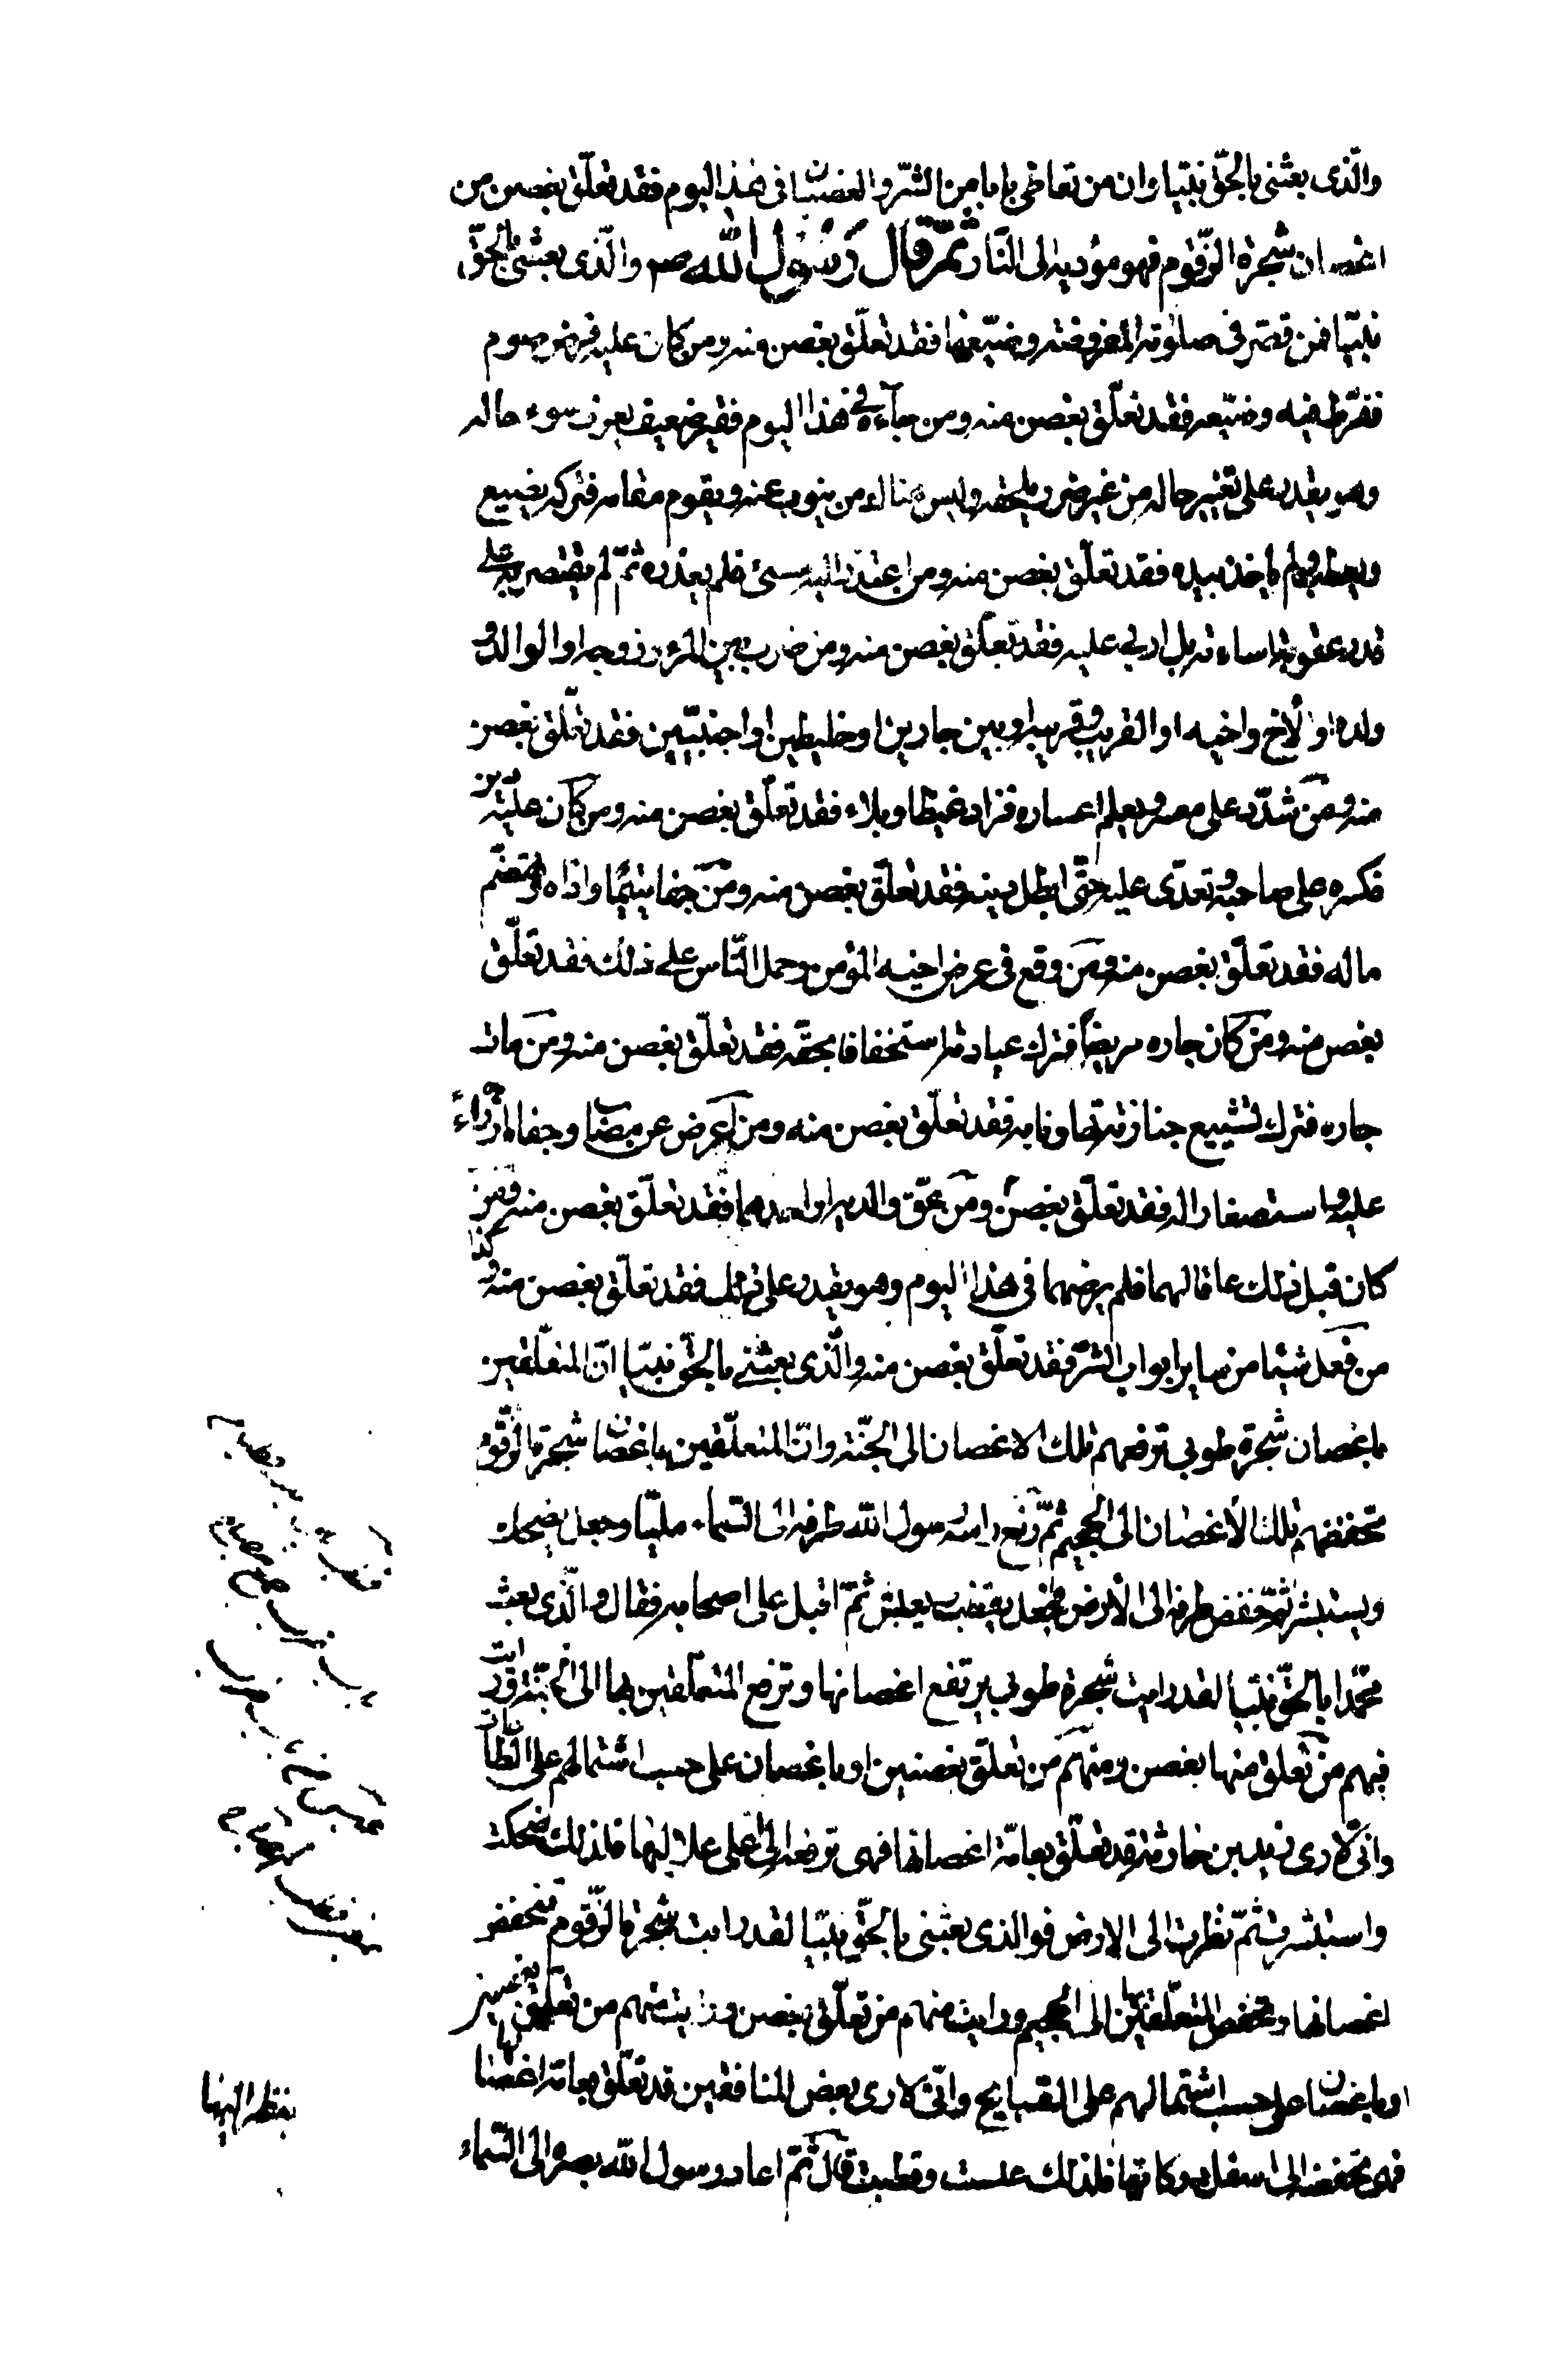 والّذى بعثنى بالحقّ نبيّا وان من تعاطى بابا من الشّر والعصيان فى هذا اليوم فقد تعلّق بغصن من
اغصان شجرة الزّقوم فهو مؤديه الى النّار ثمّ قال رسول الله ص والّذى بعثنى بالحقّ
نبيّا فمن قصّر فى صلوته المفروضة وضيّعها فقد تعلّق بغصن منه ومن كان عليه فرض صوم
ففرّط فيه وضيّعه فقد تعلّق بغصن منه ومن جآءه فى هذا اليوم فقير ضعيف يعرف سوء حاله
وهو يقدر على تغيير حاله من غير ضرر يلحقه وليس هناك من ينوب عنه ويقوم مقامه فتركه يضيع
ويعطب ولم ياخذ بيده فقد تعلّق بغصن منه ومن اعتذر اليه مسىء فلم يعذره ثمّ لم يقتصر به على
قدر عقوبة اساءته بل اربى عليه فقد تعلّق بغصن منه ومن ضرب بين المرء وزوجه او الوالد و
ولده او الأخ واخيه او القريب وقريبه او بين جارين او خليطين او اجنبيّين فقد تعلّق بغصن
منه ومن شدّد على معسر وهو يعلم اعساره فزاد غيظا وبلاء فقد تعلّق بغصن منه ومن كان عليه دين
فكسره على صاحبه وتعدّى عليه حتّى ابطل دينه فقد تعلّق بغصن منه ومن جفا يتيما واذاه وتهضّم
ماله فقد تعلّق بغصن منه ومن وقع فى عرض اخيه المؤمن وحمل النّاس على ذلك فقد تعلّق
بغصن منه ومن كان جاره مريضاً فترك عيادته استخفافا بحقّه فقد تعلّق بغصن منه ومن مات
جاره فترك تشييع جنازته تهاونا به فقد تعلّق بغصن منه ومن اعرض عن مصاب وجفاه ازراءً
عليه واستصغارا له فقد تعلّق بغصن ومن عقّ والديه او احدهما فقد تعلّق بغصن منه ومن
كان قبل ذلك عاقا لهما فلم يرضهما فى هذا اليوم وهو يقدر على ذلك فقد تعلّق بغصن منه وكذا
من فعل شيئا من ساير ابواب الشّر فقد تعلّق بغصن منه والّذى بعثنى بالحقّ نبيّا انّ المتعلّقين
باغصان شجرة طوبى ترفعهم تلك الاغصان الى الجنّة وانّ المتعلّقين باغصان شجرة الزّقوم
تخفضهم تلك الأغصان الى الجحيم ثمّ رفع رسول الله طرفه الى السّماء مليّا وجعل يضحك
ويستبشر ثمّ خفض طرفه الى الأرض فجعل يقطب ويعبس ثمّ اقبل على اصحابه فقال والّذى بعث
محمّدا بالحقّ نبيّا لقد رايت شجرة طوبى يرتفع اغصانها وترفع المتعلّقين بها الى الجنّة ورايت
فيهم من تعلّق منها بغصن ومنهم من تعلّق بغصنين او باغصان على حسب اشتمالهم على الطّاعات
وانّى لارى زيد بن حارثة قد تعلّق بعامّة اغصانها فهى ترفعه الى اعلى علاليها فلذلك ضحكت
واستبشرت ثمّ نظرت الى الارض فوالذى بعثنى بالحقّ نبيّا لقد رايت شجرة الزّقوم تنخفض
اغصانها وتخفض المتعلّقين بها الى الجحيم ورايت منهم من تعلّق بغصن ورايت منهم من تعلّق بغصنين
او باغصان على حسب اشتمالهم على القبايح وانّى لارى بعض المنافقين قد تعلّق بعامة اغصانها
فهى تخفضه الى اسفل دركاتها فلذلك عبست وقطبت قال ثمّ اعاد رسول الله بصره الى السّماء
ينظر اليها